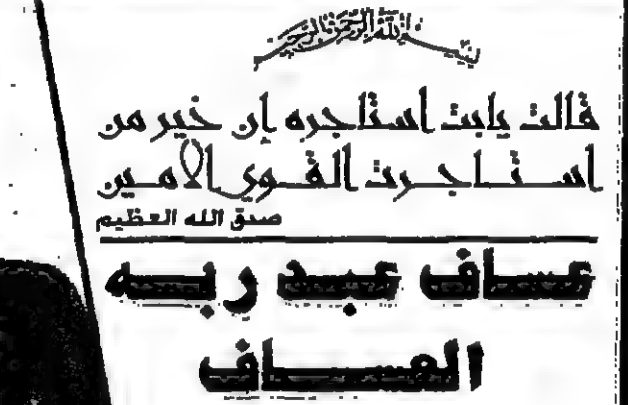 بسم الله الرحمن الرحيم
قالت يابت استاجره إن خير من
استاجرت القوي الامين
صدق الله العظيم
عساف عبد ربه
العساف